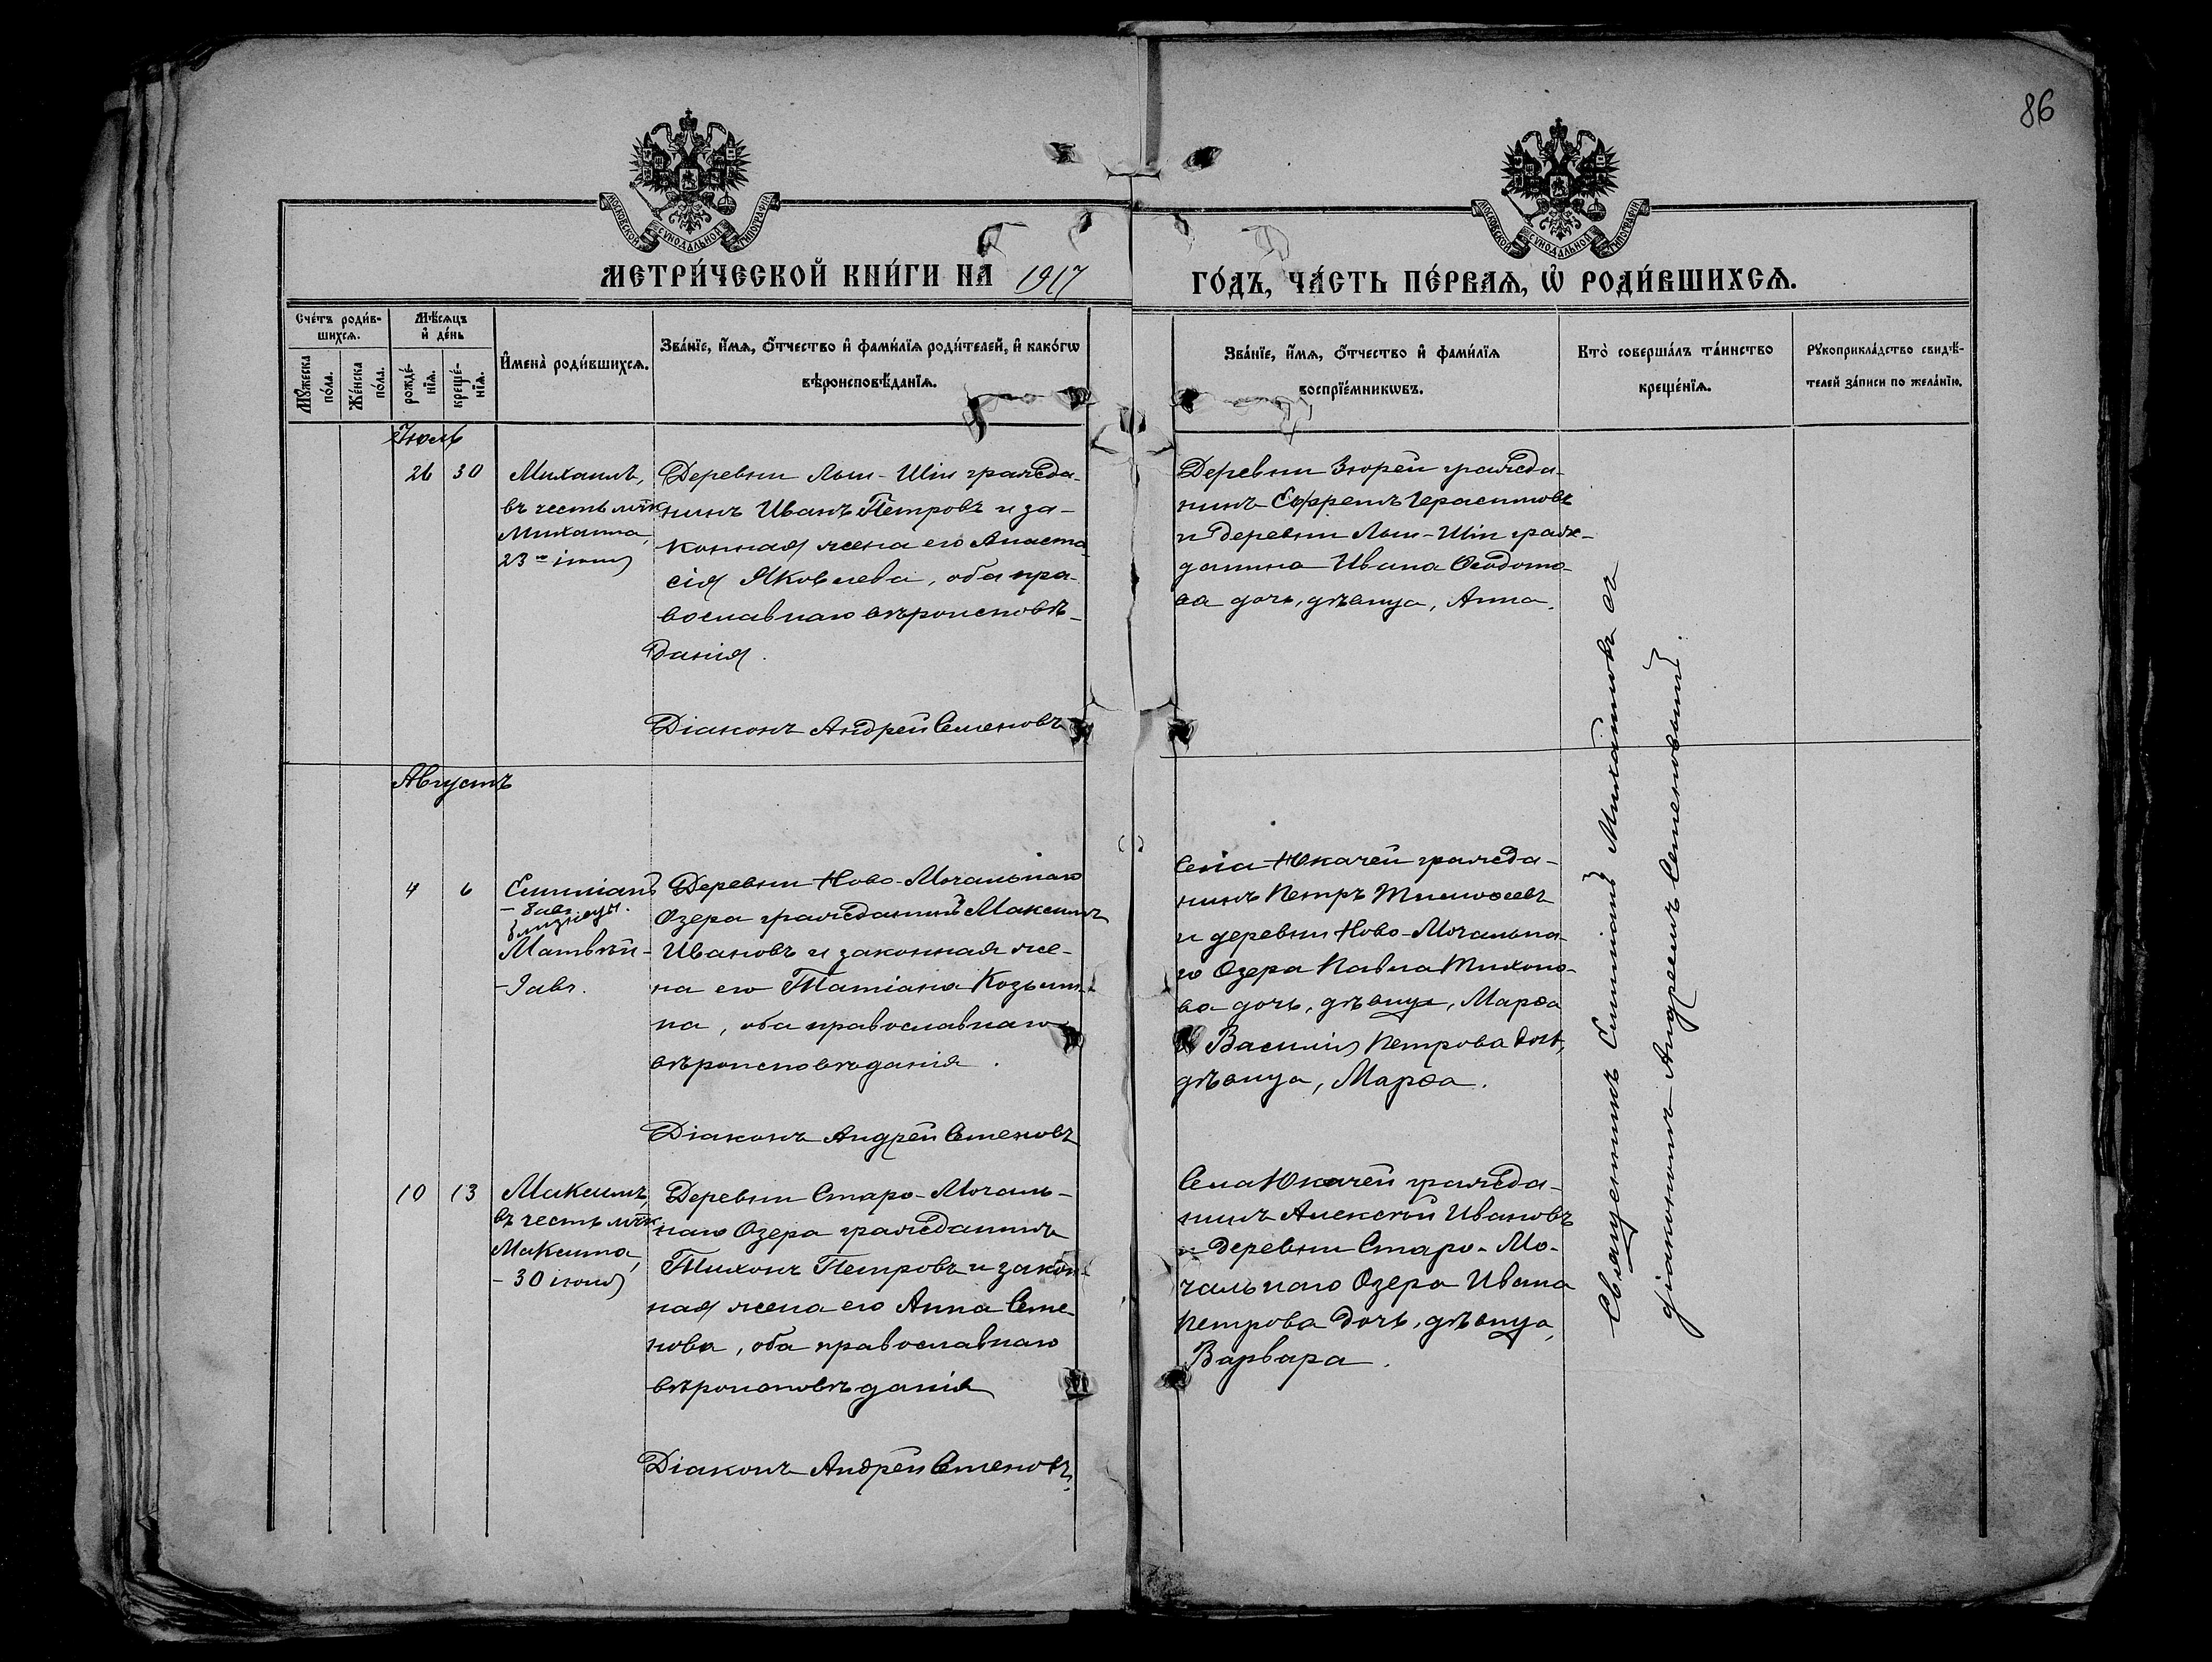 86
МОСКОВСКОЙ СѴНОДАЛЬНОЙ ТИПОГРАФІИ
МОСКОВСКОЙ СѴНОДАЛЬНОЙ ТИПОГРАФІИ
МЕТРИ́ЧЕСКОЙ КНИ́ГИ НА 1917
ГО́ДЪ, ЧА́СТЬ ПЕ́РВАѦ, Ѡ҆ РОДИ́ВШИХСѦ.
Сче́тъ роди́в-
шихсѧ.
Мꙋ́жеска
по́ла.
Же́нска
по́ла.
Мѣ́сѧцъ
и҆ де́нь
рожде́-
нїѧ.
креще́-
нїѧ.
И҆мена̀ роди́вшихсѧ.
Зва́нїе, и҆́мѧ, ѻ҆́тчество и҆ фами́лїѧ роди́телей, и҆ како́гѡ
вѣроисповѣ́данїѧ.
Зва́нїе, и҆́мѧ, ѻ҆́тчество и҆ фами́лїѧ
воспрїе́мникѡвъ.
Кто̀ соверша́лъ та́инство
креще́нїѧ.
Рꙋкоприкла́дство свидѣ́-
телей за́писи по жела́нїю.
Іюль
26 30
Михаилъ,
въ честь мчк
Михаила,
23 іюня
Деревни Лыи-Шіи гражда-
нинъ Иванъ Петровъ и за-
конная жена его Анаста
сія Яковлева, оба пра-
вославнаго вѣроисповѣ-
данія.
Діаконъ Андрей Семеновъ
Деревни Зюрей гражда-
нинъ Ефремъ Герасимовъ
и деревни Лыи-Шіи граж-
данина Ивана Ѳеодото-
ва дочь, дѣвица, Анна.
Августъ
4 6
Емиліанъ
- 8 авг.
близнецы.
Матвѣй -
- 9 авг.
Деревни Ново-Мочальнаго
Озера гражданинъ Максимъ
Ивановъ и законная же-
на его Татіана Козьми-
на, оба православнаго
вѣроисповѣданія.
Діаконъ Андрей Семеновъ
Села Юкачей гражда-
нинъ Петръ Тимоѳеевъ
и деревни Ново-Мочальна-
го Озера Павла Тихоно-
ва дочь, дѣвица, Марѳа
и Василія Петрова дочь,
дѣвица, Марѳа.
10 13
Максимъ,
въ честь мчк
Максима,
- 30 іюня
Деревни Старо-Мочаль-
наго Озера гражданинъ
Тихонъ Петровъ и закон-
ная жена его Анна Семе-
нова, оба православнаго
вѣроисповѣданія
Діаконъ Андрей Семеновъ
Села Юкачей гражда-
нинъ Алексѣй Ивановъ
и деревни Старо-Мо-
чальнаго Озера Ивана
Петрова дочь, дѣвица,
Варвара.
Священникъ Емиліанъ Михайловъ съ
діакономъ Андреемъ Семеновымъ.